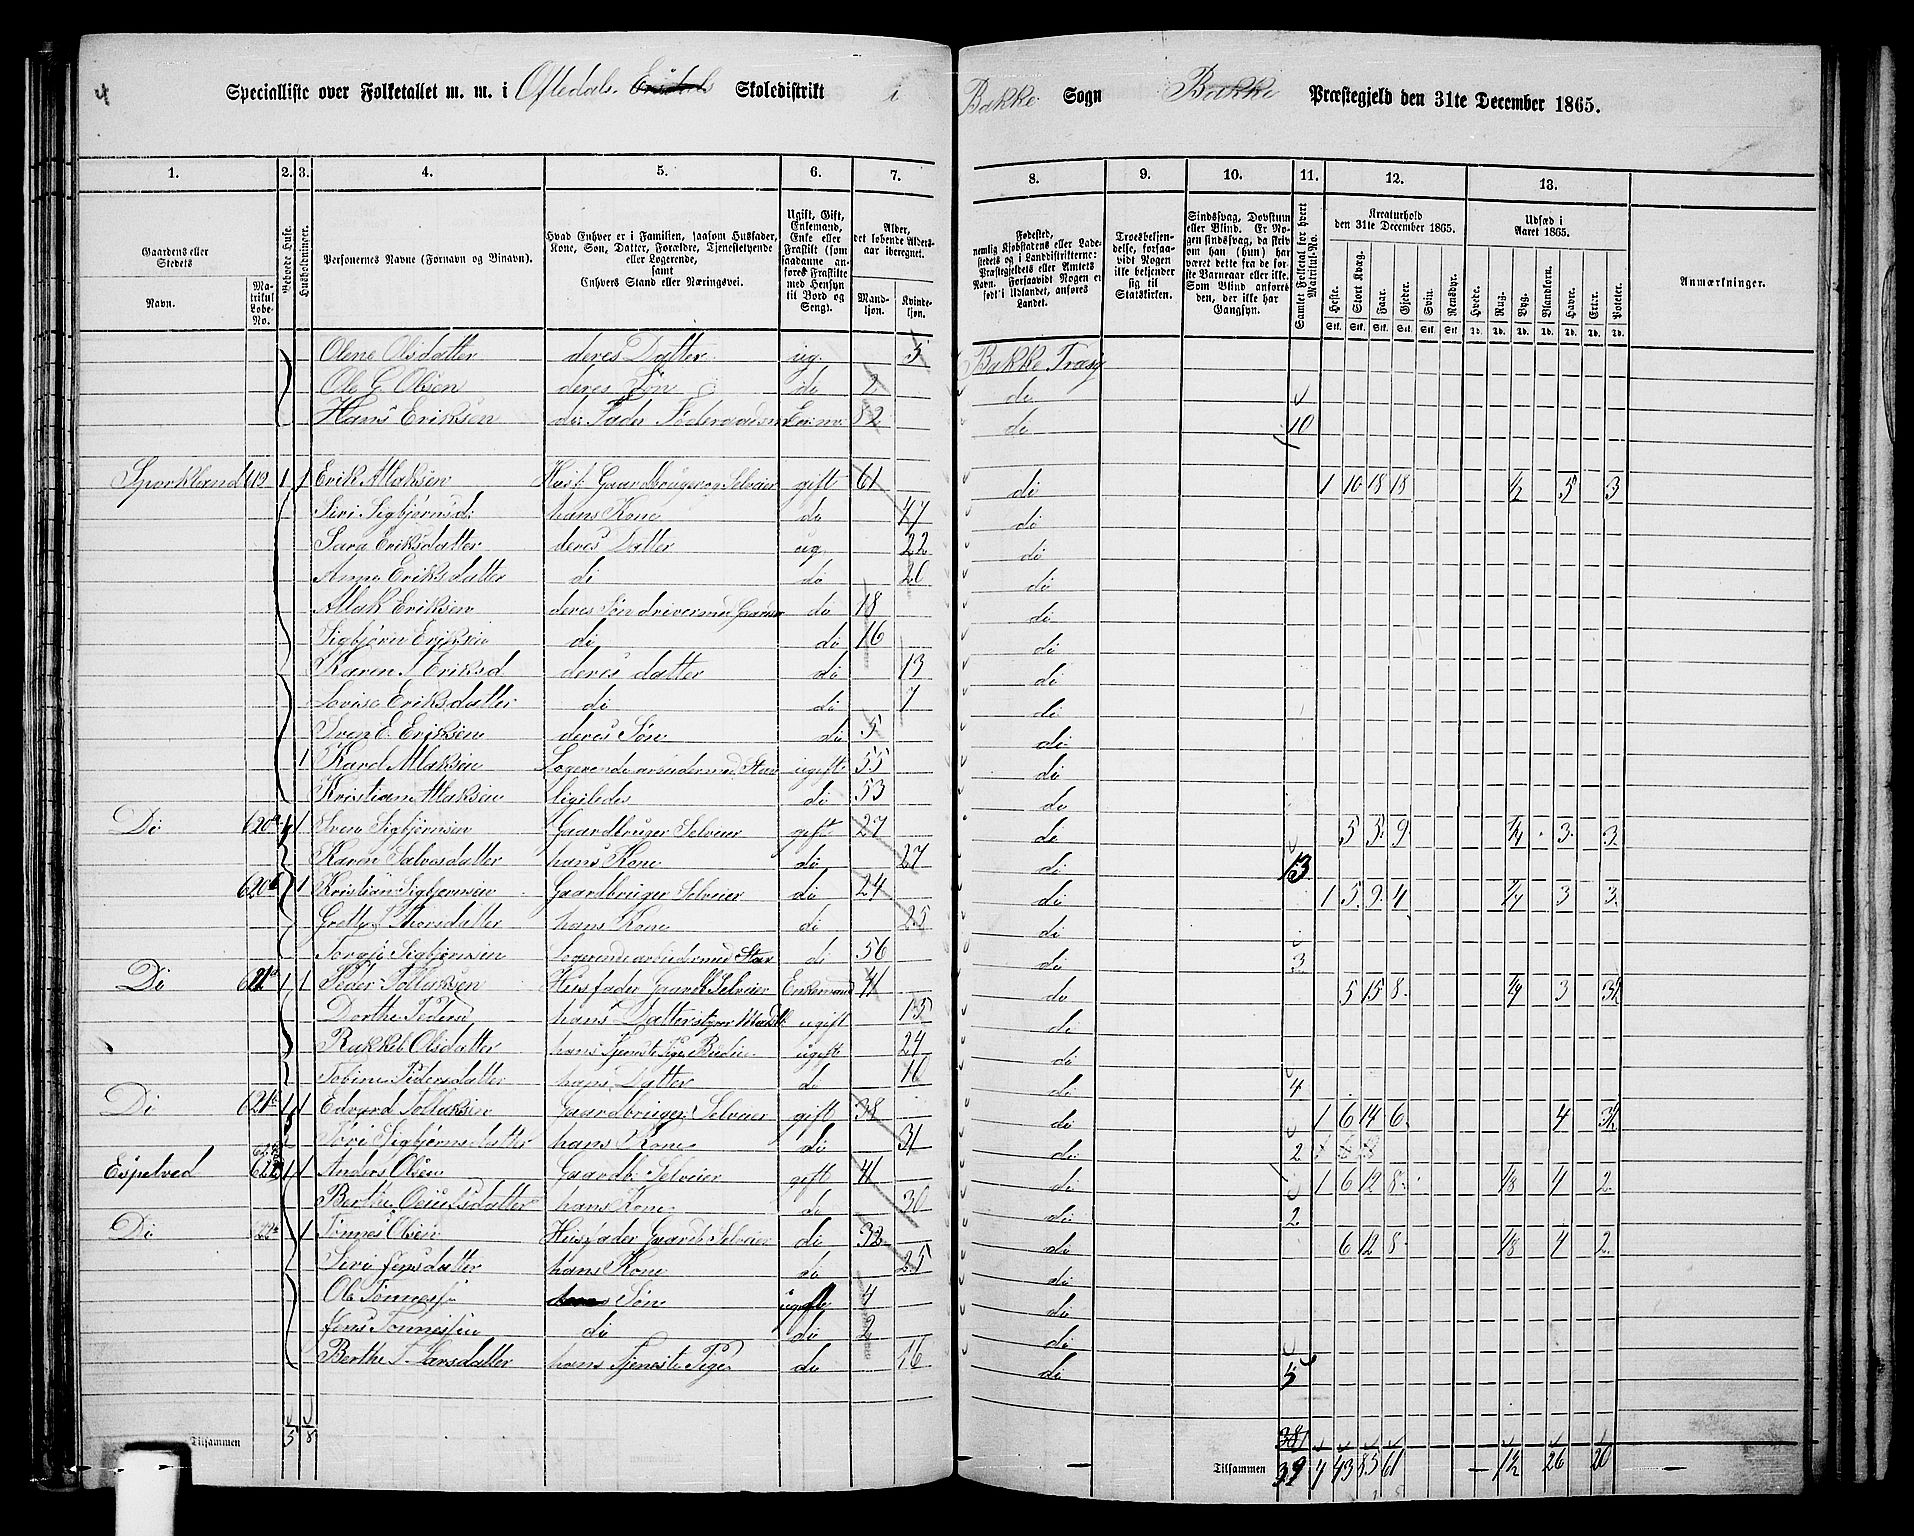 4
Specialliste over Folketallet m. m. i Oftedals Skoledistrikt i Bakke Sogn Bakke Præstegjeld den 31te December 1865.
1. 2. 3. 4. 5. 6. 7. 8. 9. 10. 11. 12. 13.
Gaardens eller Stedets
Navn. Matrikul Løbe-No.
Beboede Huse.
Husholdninger.
Personernes Navne (Fornavn og Binavn).
Hvad Enhver er i Familien, saasom Husfader, Kone, Søn, Datter, Forældre, Tjenestetyende eller Logerende, samt Enhvers Stand eller Næringsvei.
Ugift, Gift, Enkemand, Enke eller Fraskilt (som saadanne anføres Fraskilte med Hensyn til Bord og Seng).
Alder, det løbende Aldersaar iberegnet.
Mandkjøn. Kvindekjøn.
Fødested, nemlig Kjøbstadens eller Ladestedets eller i Landdistrikterne: Præstegjeldets eller Amtets Navn. Forsaavidt Nogen er født i Udlandet, anføres Landet.
Troesbekjendelse, forsaavidt Nogen ikke bekjender sig til Statskirken.
Sindssvag, Døvstum eller Blind. Er Nogen sindssvag, da skriv om han (hun) har været dette fra de første Barneaar eller ikke. Som Blind anføres den, der ikke har Gangsyn.
Samlet Folketal for hvert Matrikul-No.
Kreaturhold den 31te December 1865.
Heste. Stort Kvæg. Faar. Gjeder. Svin. Rensdyr.
Udsæd i Aaret 1865.
Hvede. Rug. Byg. Blandkorn. Havre. Erter. Poteter.
Anmærkninger.
Olene Olsdatter deres Datter ug. 5 Bakke Præstg
Ole G. Olsen deres Søn do 2 do
Hans Eriksen di Fader Føderaadsm Enkm. 82 do 10
Sporkland 619 1 1 Erik Atlaksen Husf. Gaardbruger og Selveier gift 61 do 1 10 18 18 1/2 5 3
Siri Sigbjørnsd: hans Kone do 47 do
Sara Eriksdatter deres Datter ug 22 do
Anne Eriksdatter di do 20 do
Atlak Eriksen deres Søn do 18 do
Sigbjørn Eriksen di do 16 do
Karen Eriksd deres datter do 13 do
Lovise Eriksdatter di do 7 do
Sven E. Eriksen deres Søn do 5 do
1 Karel Atlaksen Logerende ugift 55 do
Kristian Atlaksen ligeledes di 53 do
Do 620a 1 1 Sven Sigbjørnsen Gaardbruger Selveier gift 27 do 5 5 9 1/4 3 3
Karen Salvesdatter hans Kone do 27 do 13
620b 1 1 Kristian Sigbjørnsen Gaardbruger Selveier do 24 do 1 5 9 4 1/4 3 3
Thorsdatter hans Kone di 25 do
Sigbjørnsen Logerende di 56 do 3
Do 621a 1 1 Peder Tollaksen Husfader Gaardb Selveier Enkemand 41 do 5 15 8 1/4 3 3 1/2
Dorthe Pedersd hans Datter ugift 15 do
Rakkel Olsdatter hans Tjeneste Pige Budeie ugift 24 do
Tobine Pedersdatter hans Datter di 10 do 4
Do 621b 1 1 Edvard Tollaksen Gaardbruger Selveier gift 38 do 1 6 14 6 4 3 1/2
Siri Sigbjørnsdatter hans Kone di 31 do 2
Espelved 622 1 1 Anders Olsen Gaardb. Selveier gift 41 do 1 6 12 8 1/8 4 2
Berthe hans Kone do 30 do 2
Do 1 Tønnes Olsen Husfader Gaardb Selveier do 32 do 6 12 8 1/8 4 2
Siri Jensdatter hans Kone do 25 do
Ole Tønnessen Søn ugift 4 do
Jens Tønnessen di di 2 do
Berthe T. Larsdatter hans Tjeneste Pige do 16 do 5
Tilsammen 5 8
38
Tilsammen 39 4 43 85 61 1 1/2 26 20